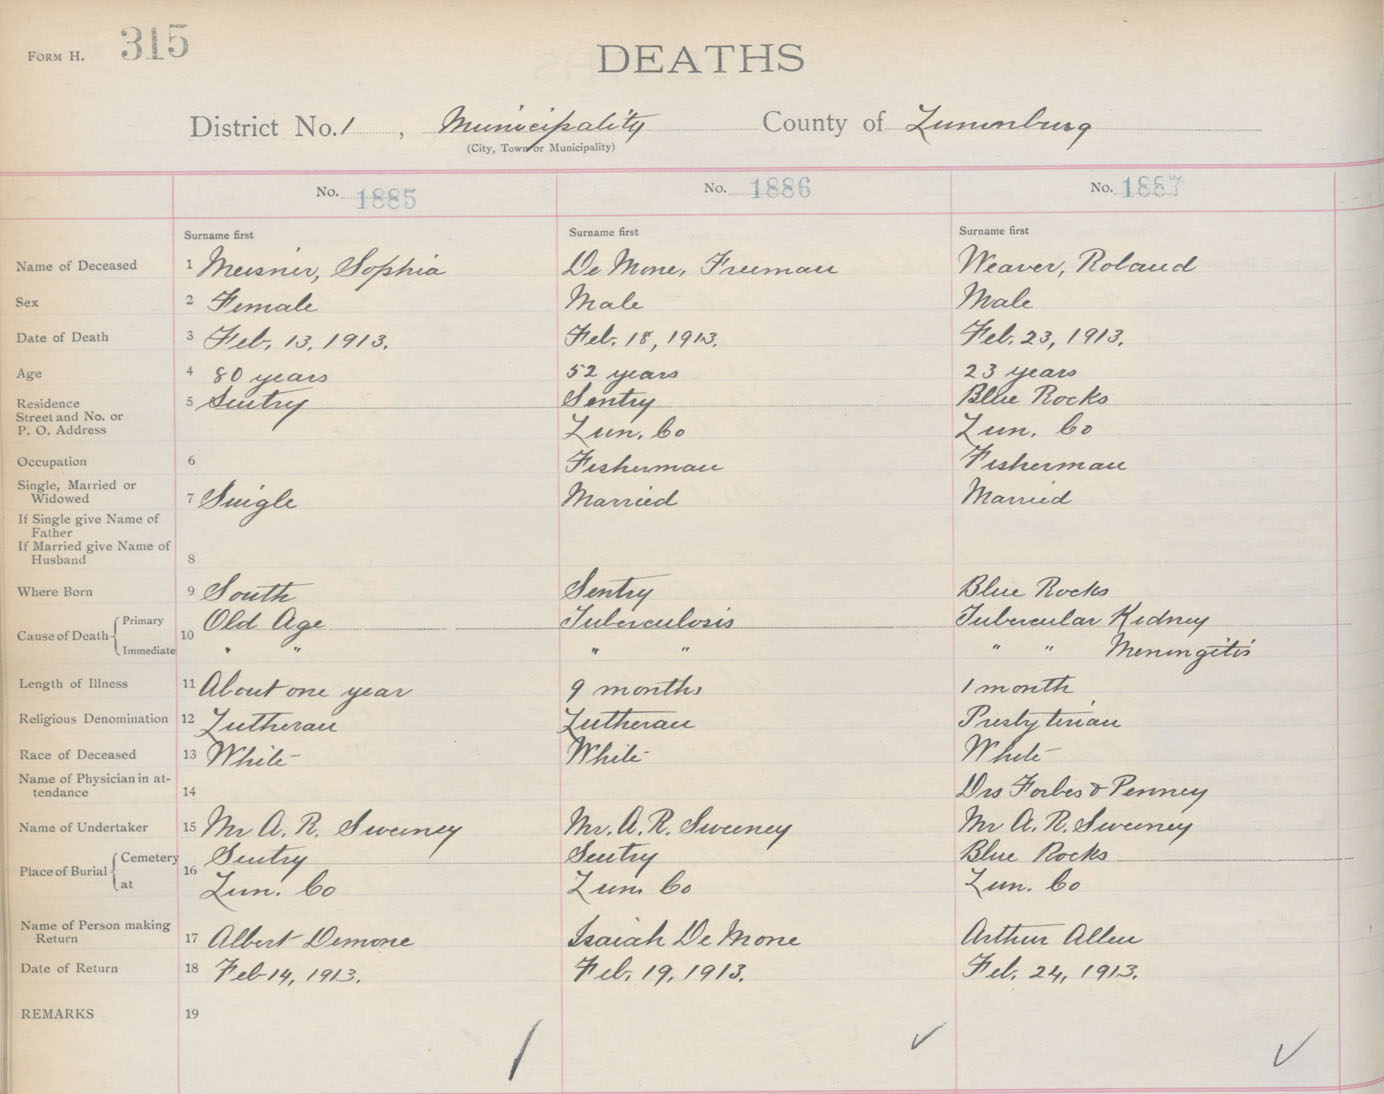 FORM H. 315
DEATHS
District No. 1, Municipality County of Lunenburg
(City, Town or Municipality)
No. 1885 No. 1886 No. 1887
Surname first Surname first Surname first
Name of Deceased 1 Meisner, Sophia De Mone, Freeman Weaver, Roland
Sex 2 Female Male Male
Date of Death 3 Feb. 13, 1913. Feb. 18, 1913. Feb. 23, 1913.
Age 4 80 years 52 years 23 years
Residence 5 Sentry Sentry Blue Rocks
Street and No. or
P. O. Address Lun. Co Lun. Co
Occupation 6 Fisherman Fisherman
Single, Married or
Widowed 7 Single Married Married
If Single give Name of
Father
If Married give Name of
Husband 8
Where Born 9 South Sentry Blue Rocks
Cause of Death Primary 10 Old Age Tuberculosis Tubercular Kidney
Immediate " " " " " " Meningitis
Length of Illness 11 About one year 9 months 1 month
Religious Denomination 12 Lutheran Lutheran Presbyterian
Race of Deceased 13 White White White
Name of Physician in at-
tendance 14 Drs Forbes & Penney
Name of Undertaker 15 Mr A. R. Sweeney Mr. A. R. Sweeney Mr A. R. Sweeney
Place of Burial Cemetery 16 Sentry Sentry Blue Rocks
at Lun. Co Lun. Co Lun. Co
Name of Person making
Return 17 Albert Demone Isaiah De Mone Arthur Allen
Date of Return 18 Feb 14, 1913. Feb. 19, 1913. Feb. 24, 1913.
REMARKS 19